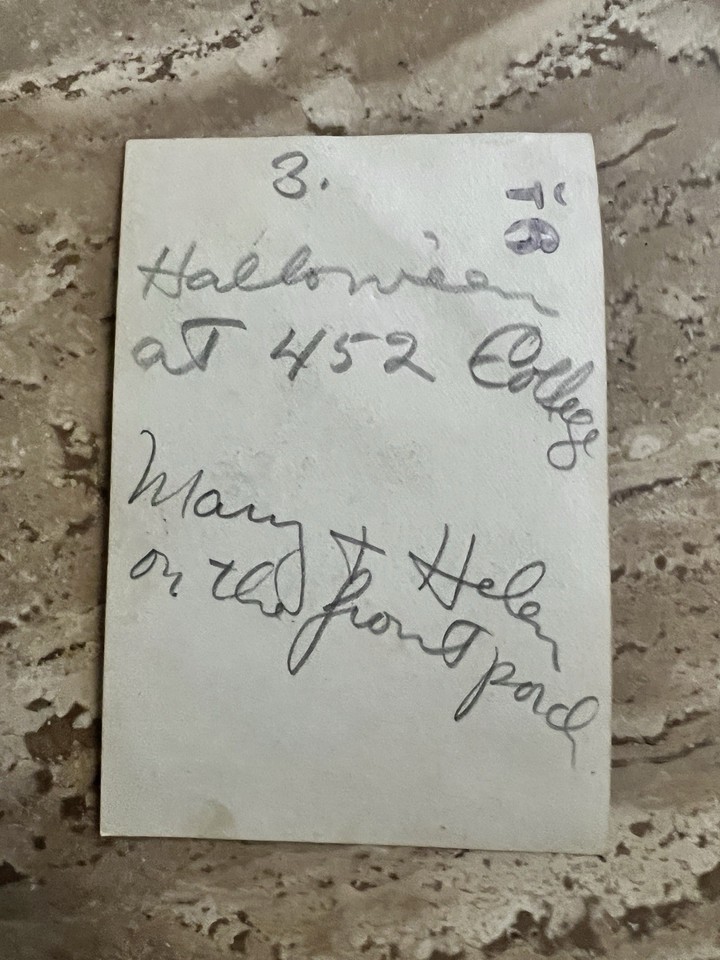 3.
Halloween
at 452 College
Mary + Helen
on the front porch